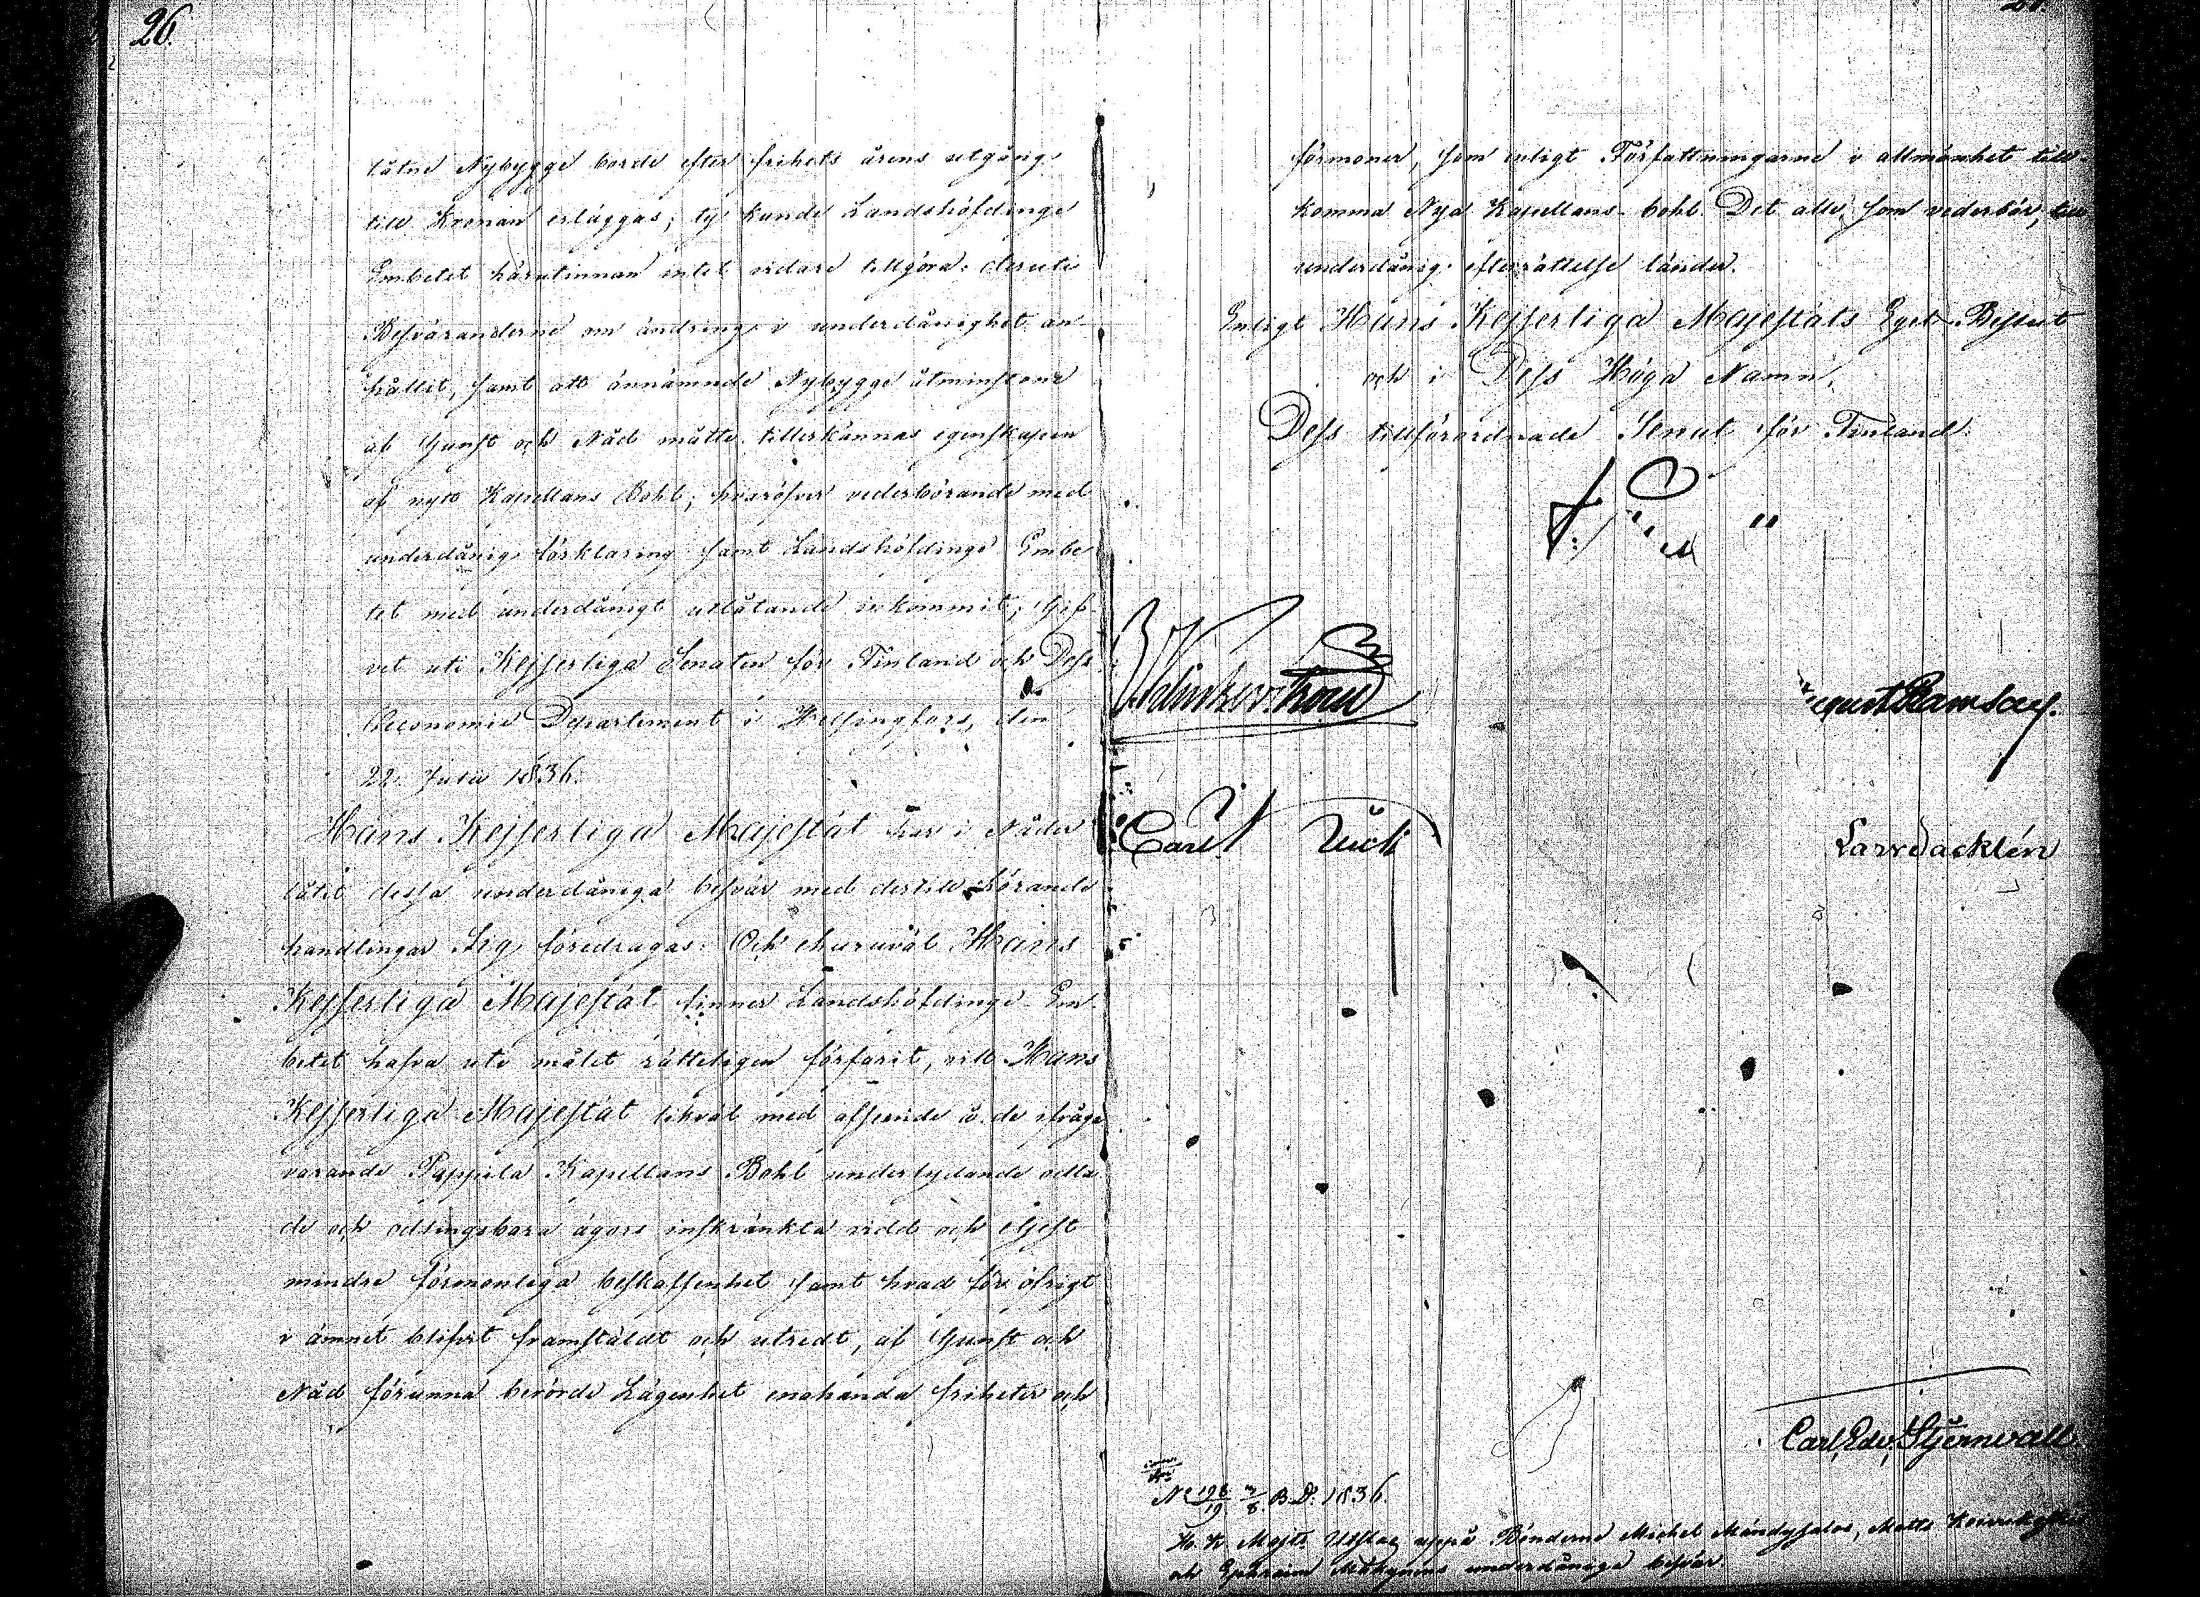 26.
låtne Nybygge borde efter frihets årens utgång
till Kronan erläggas; ty kunde Landshöfdinge
Embetet härutinnan intet vidare tillgöra: deruti
Besväranderne om ändring i underdånighet an-
hållit, samt att ännämnde Nybygge åtminstone
af Gunst och Nåd måtte tillerkännas egenskapen
af nytt Kapellans Bohl; hvaröfver vederbörande med
underdånig förklaring samt Landshöfdinge Embe
tet med underdånigt utlåtande inkommit; Gif-
vet uti Kejserliga Senaten för Finland och Dess
Oeconomie Departement i Helsingfors, den
22 Julii 1836.
Hans Kejserliga Majestät har i Nåder
låtit dessa underdåniga besvär med dertill hörande
handlingar Sig föredragas: Och ehuruväl Hans
Kejserliga Majestät finner Landshöfdinge Em-
betet hafva uti målet rätteligen förfarit, vill Hans
Kejserliga Majestät likväl med afseende å de ifråga
varande Pappila Kapellans Bohl underlydande odla-
de och odlingsbara ägors inskränkta vidd och
mindre förmonliga beskaffenhet samt hvad för öfrigt
i ämnet blifvit framstäldt och utredt, af Gunst och
Nåd förunna berörde Lägenhet enahanda friheter och
förmoner, som enligt Författningarne i allmänhet till-
komma Nya Kapellans bohl. Det alle, som vederbör, till
underdånig efterrättelse länder.
Enligt Hans Kejserliga Majestäts Eget Beslut
och i Dess Höga Namn,
Dess tillförordnade Senat för Finland.
August Ramsay.
Carl
Lars Sacklén
Carl Edv. Stjernvall
No 198/19 B.D. 1836.
K. K. Majts Utslag uppå Bönderne Michel Mändysalos, Matts
och Ephraim underdåniga besvär.